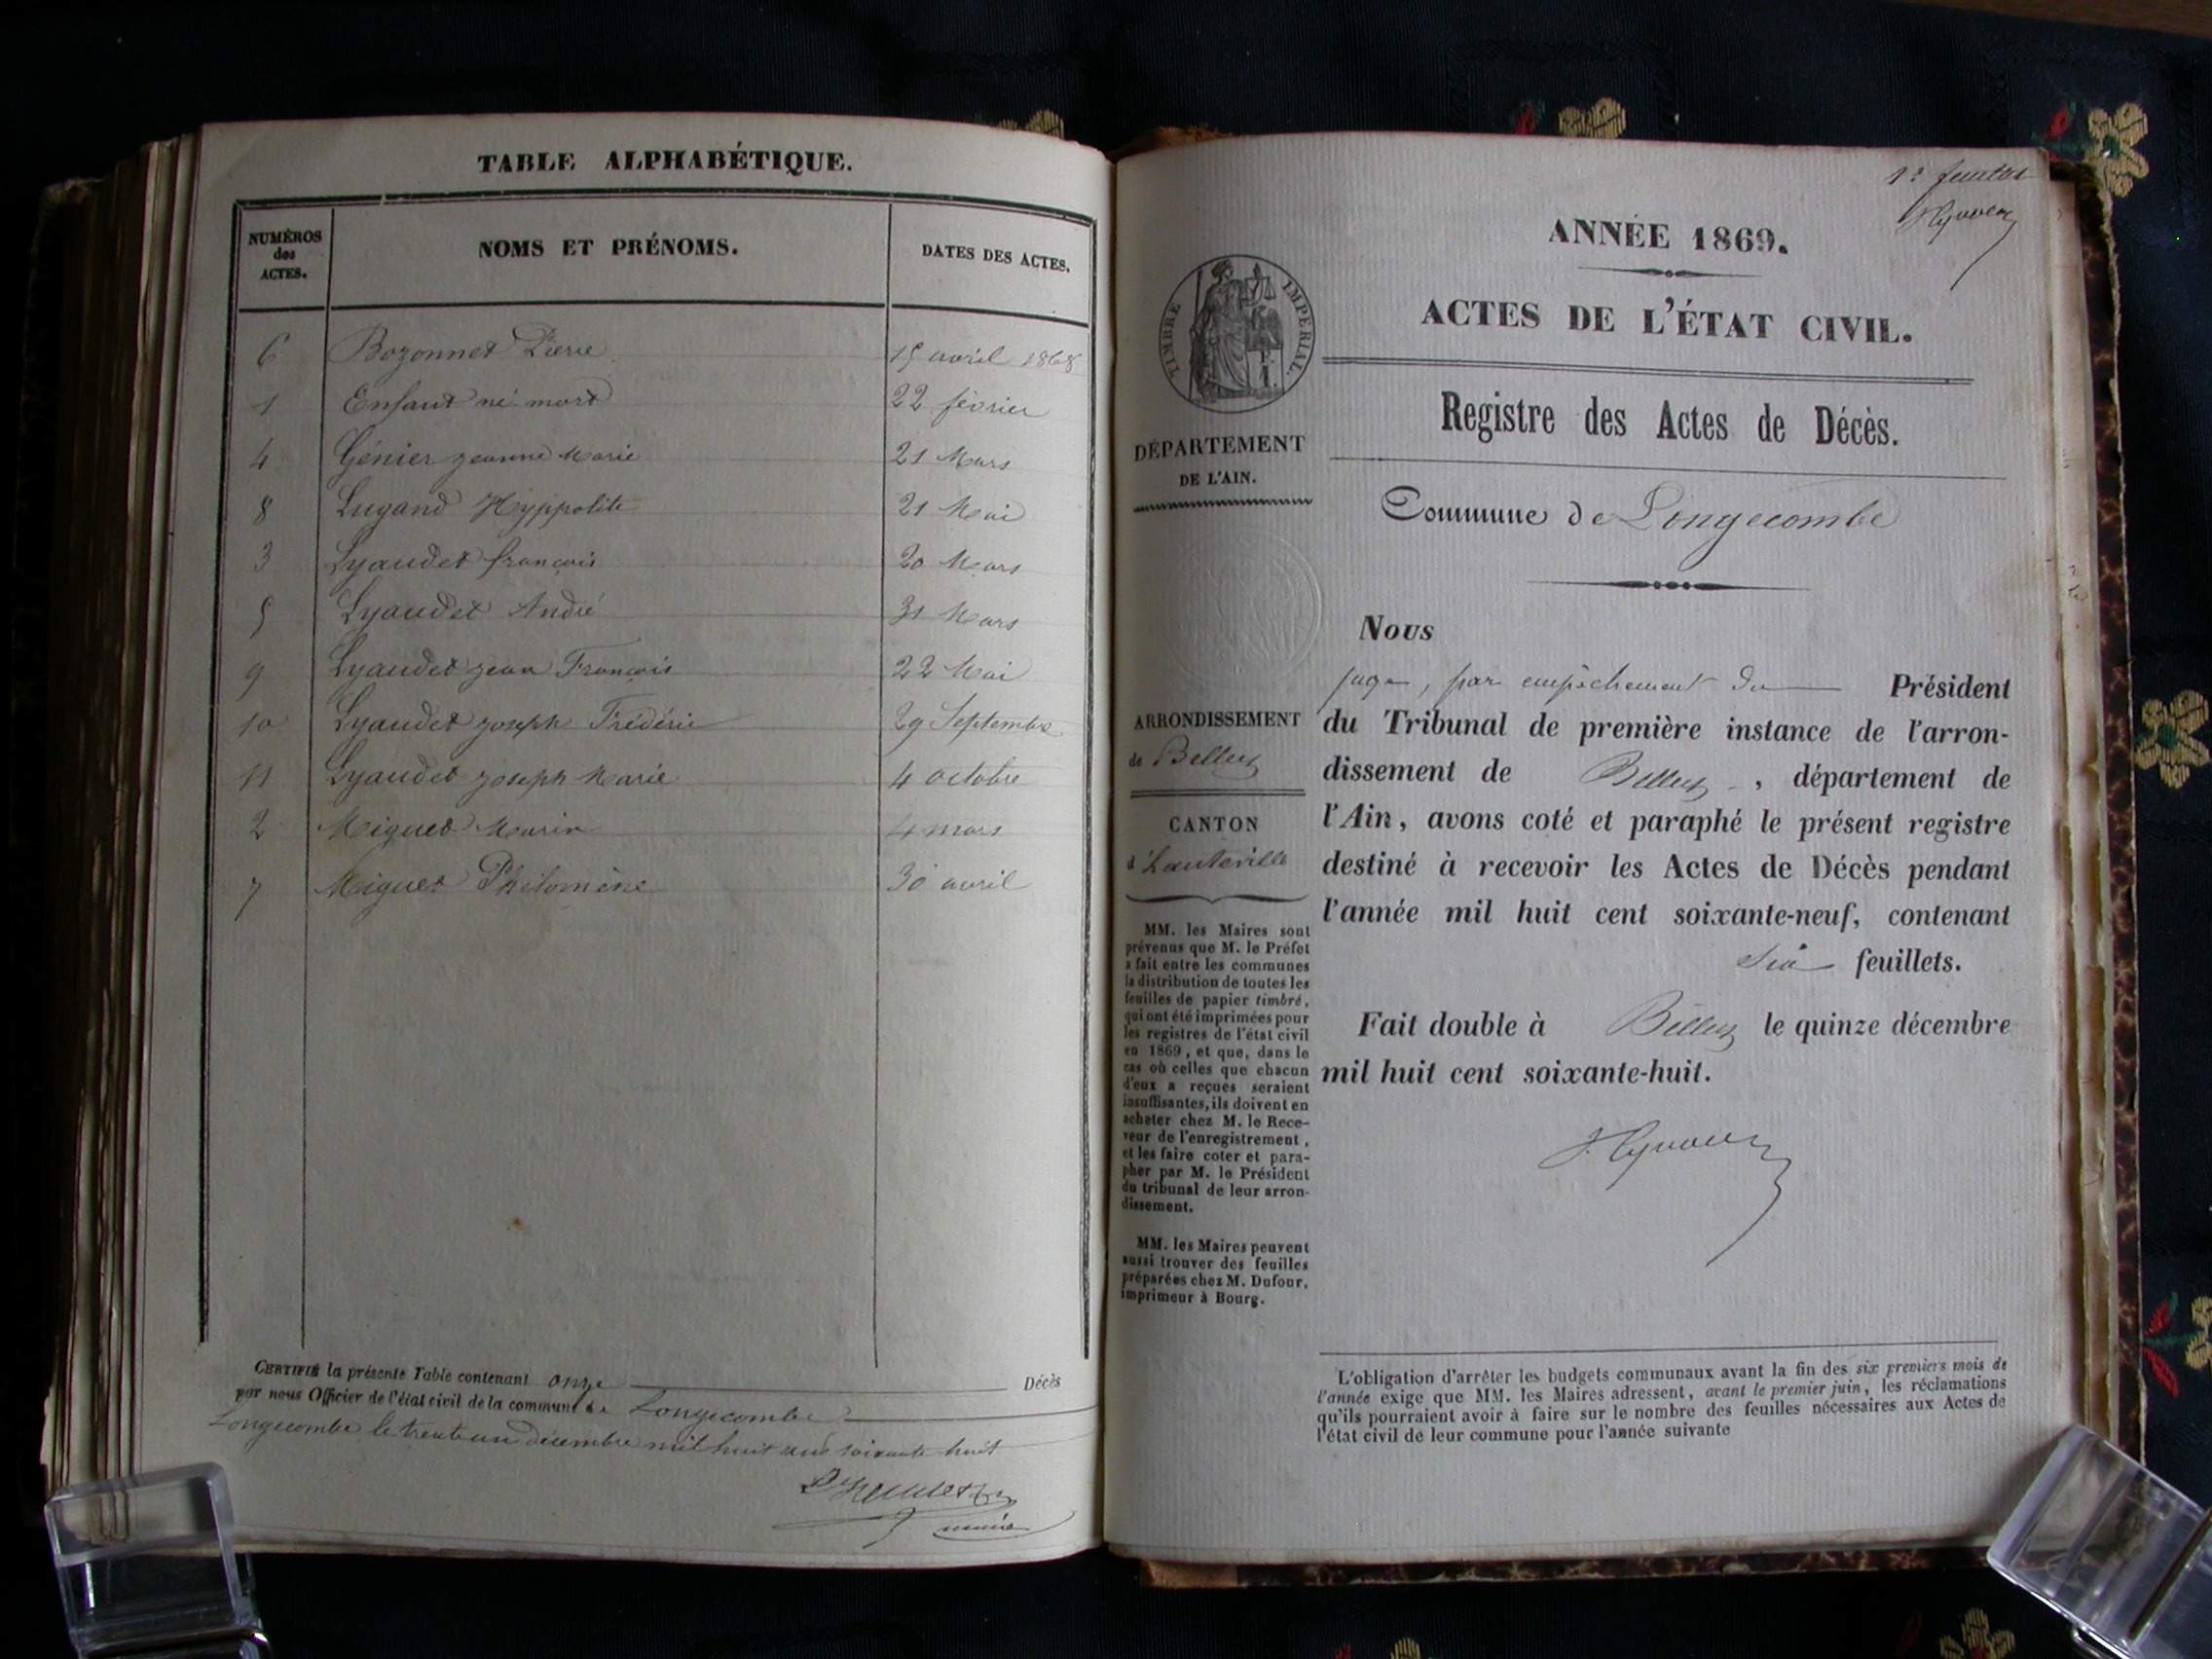 TABLE ALPHABÉTIQUE.
NUMÉROS des ACTES.
NOMS ET PRÉNOMS.
DATES DES ACTES.
6 Bozonnet Pierre 15 avril 1868
1 Enfant né mort 22 février
4 Génier Jeanne Marie 21 Mars
8 Lugand Hyppolite 21 Mai
3 Lyaudet françois 20 Mars
5 Lyaudet André 31 Mars
9 Lyaudet Jean François 22 Mai
10 Lyaudet Joseph Frédéric 29 Septembre
11 Lyaudet Joseph Marie 4 octobre
2 Miguet Marin 4 mars
7 Miguet Philomène 30 avril
CERTIFIÉ la présente Table contenant onze Décès
par nous Officier de l'état civil de la commune de Longecombe
Longecombe le trente un décembre mil huit cent soixante huit
maire
1er feuillet
ANNÉE 1869.
TIMBRE IMPÉRIAL.
ACTES DE L'ÉTAT CIVIL.
Registre des Actes de Décès.
DÉPARTEMENT
DE L'AIN.
Commune de Longecombe
Nous
juge, par empêchement du Président
du Tribunal de première instance de l'arron-
dissement de Belley, département de
l'Ain, avons coté et paraphé le présent registre
destiné à recevoir les Actes de Décès pendant
l'année mil huit cent soixante-neuf, contenant
six feuillets.
Fait double à Belley le quinze décembre
mil huit cent soixante-huit.
ARRONDISSEMENT
de Belley
CANTON
d'hauteville
MM. les Maires sont
prévenus que M. le Préfet
a fait entre les communes
la distribution de toutes les
feuilles de papier timbré,
qui ont été imprimées pour
les registres de l'état civil
en 1869, et que, dans le
cas où celles que chacun
d'eux a reçues seraient
insuffisantes, ils doivent en
acheter chez M. le Rece-
veur de l'enregistrement,
et les faire coter et para-
pher par M. le Président
du tribunal de leur arron-
dissement.
MM. les Maires peuvent
aussi trouver des feuilles
préparées chez M. Dufour,
imprimeur à Bourg.
L'obligation d'arrêter les budgets communaux avant la fin des six premiers mois de
l'année exige que MM. les Maires adressent, avant le premier juin, les réclamations
qu'ils pourraient avoir à faire sur le nombre des feuilles nécessaires aux Actes de
l'état civil de leur commune pour l'année suivante